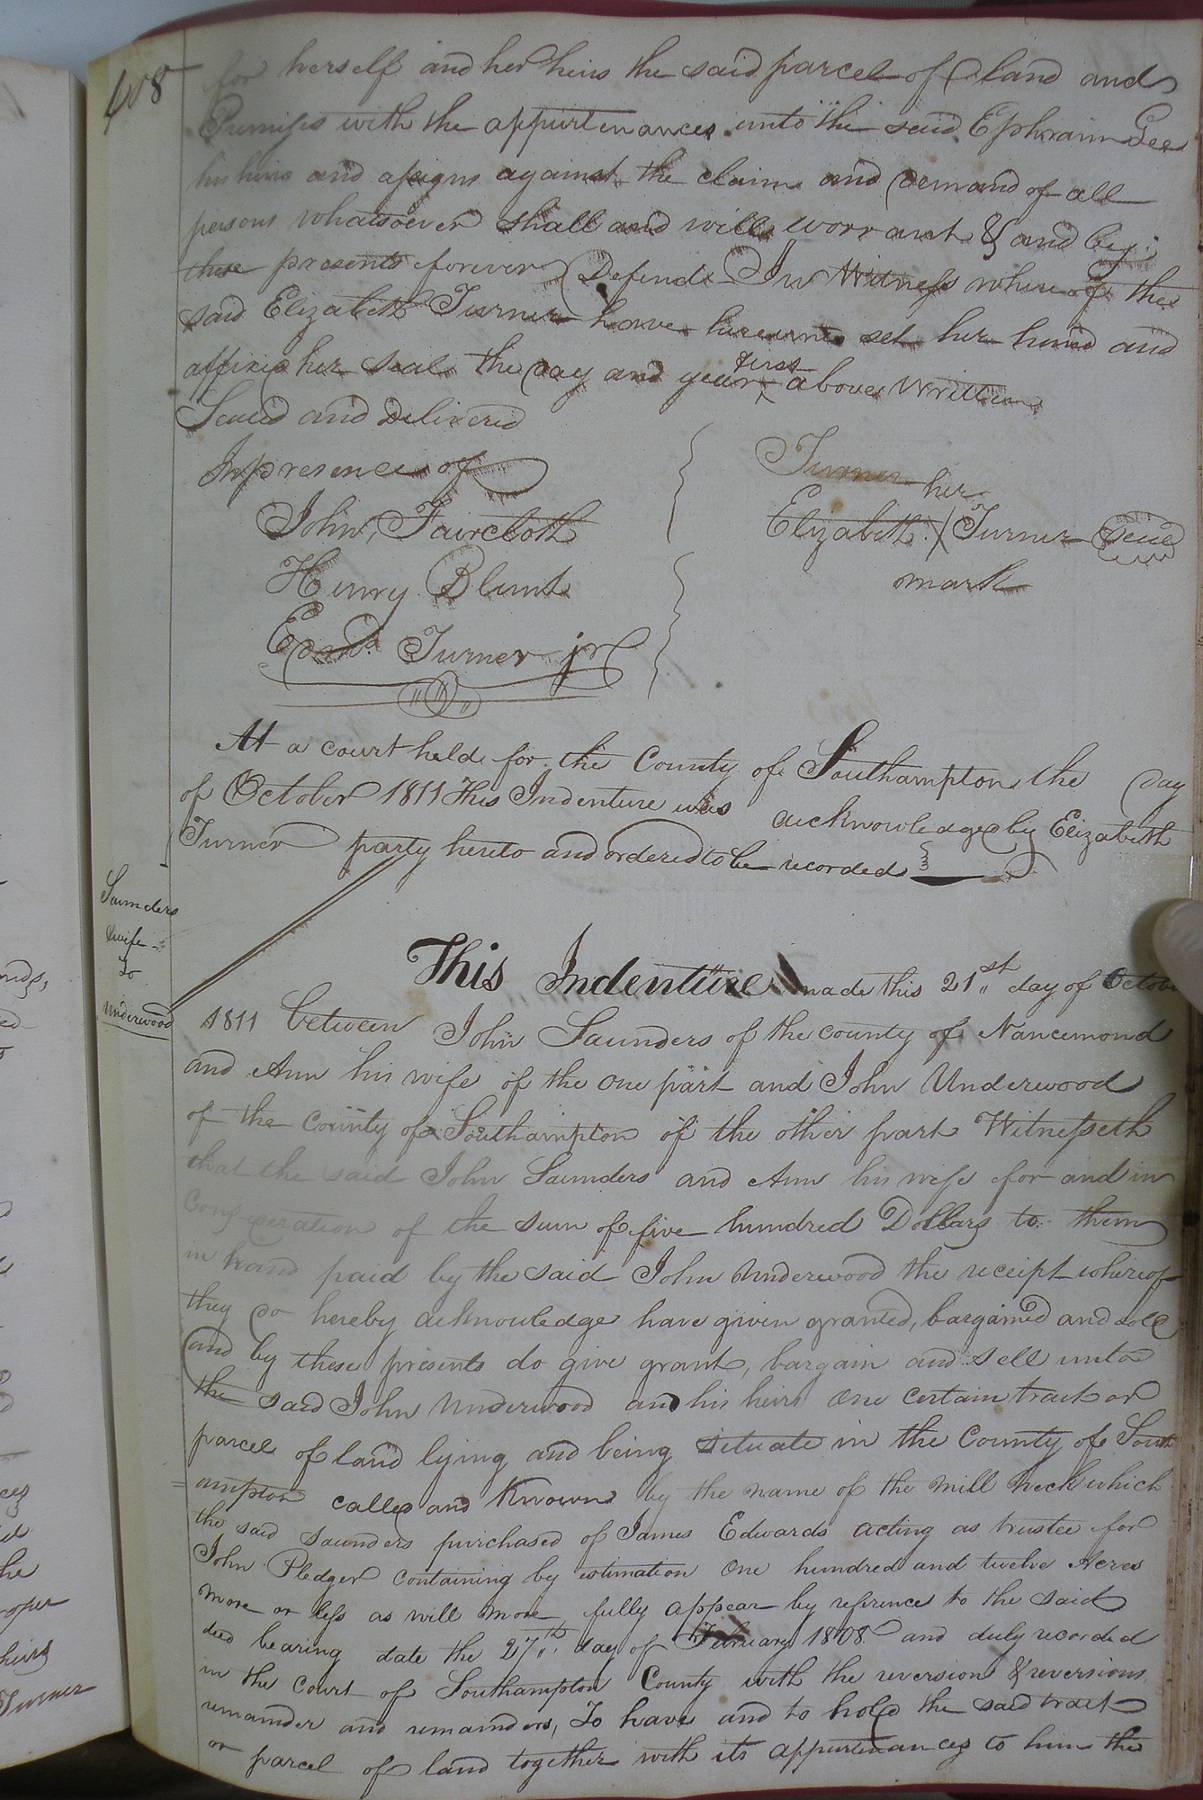 408
for herself and her heirs the said parcel of land and
Premises with the appurtenances unto the said Ephraim Gee
his heirs and assigns against the claim and demand of all
persons whatsoever shall and will warrant & and by
these presents forever Defend In Witness where of the
said Elizabeth Turner have hereunto set her hand and
affixed her seal the day and year first above Written
Sealed and Delivered
In presence of
John Faircloth
Henry Blunt
Edmd. Turner jr
Turner her
Elizabeth Turner Seal
mark
At a court held for the County of Southampton the day
of October 1811 This Indenture was acknowledged by Elizabeth
Turner party hereto and ordered to be recorded
Saunders
& wife
To
Underwood
This Indenture made this 21st day of Octobe
1811 between John Saunders of the county of Nancemond
and Ann his wife of the one part and John Underwood
of the County of Southampton of the other part Witnesseth
that the said John Saunders and Ann his wife for and in
Consideration of the sum of five hundred Dollars to them
in hand paid by the said John Underwood the receipt whereof
they do hereby acknowledge have given granted, bargained and sold
and by these presents do give grant, bargain and sell unto
the said John Underwood and his heirs One certain tract or
parcel of land lying and being situate in the County of South
ampton called and Known by the name of the mill neck which
the said Saunders purchased of James Edwards acting as trustee for
John Pledger containing by estimation One hundred and twelve Acres
more or less as will more fully appear by reference to the said
deed bearing date the 27th day of February 1808 and duly recorded
in the Court of Southampton County with the reversion & reversions
remainder and remainders, To have and to hold the said tract
or parcel of land together with its appurtenances to him the